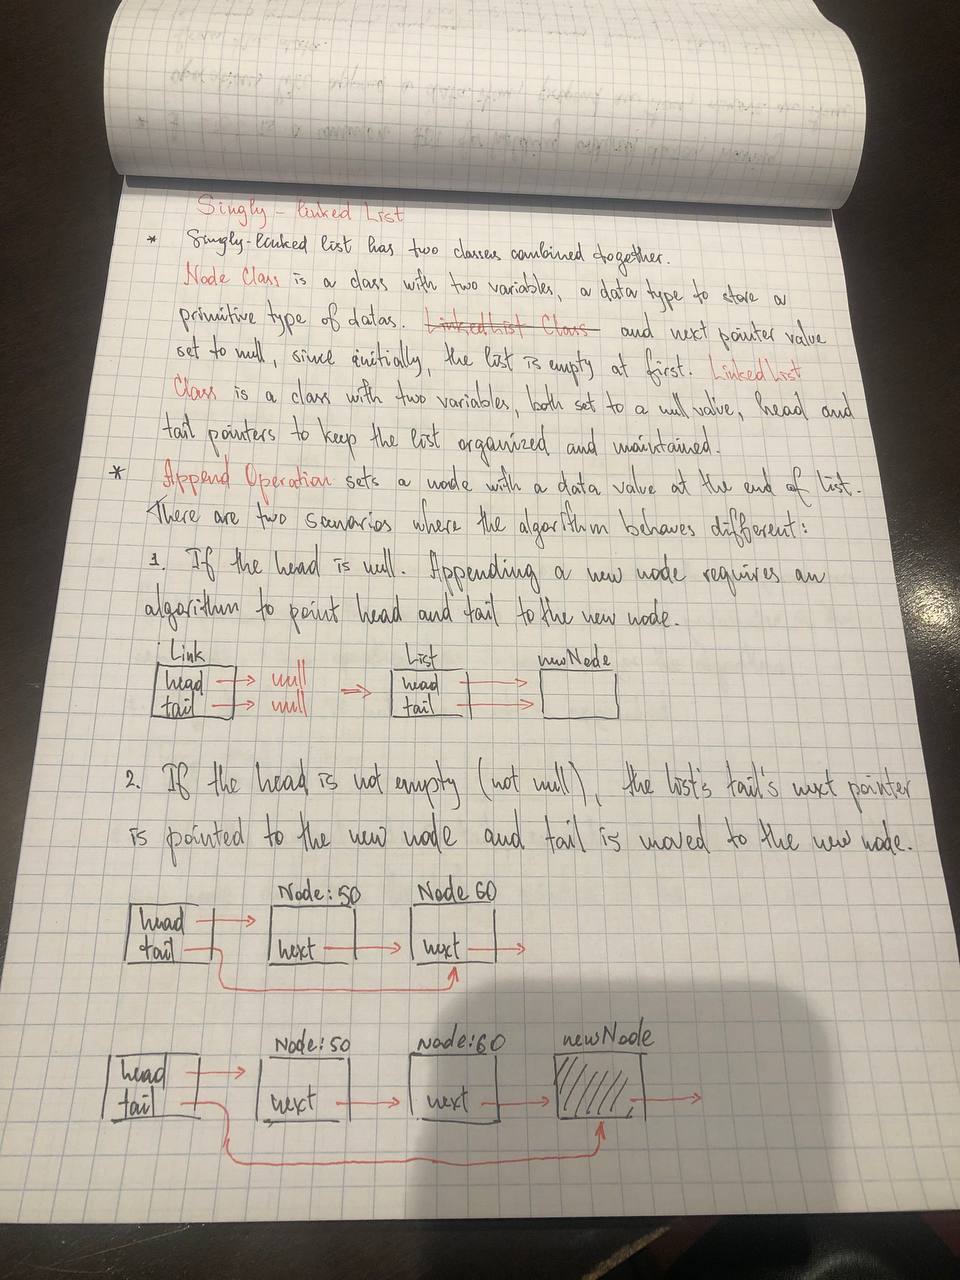 Singly-linked List
* Singly-linked list has two classes combined together.
Node Class is a class with two variables, a data type to store a
primitive type of datas. LinkedList Class and next pointer value
set to null, since initially, the list is empty at first. LinkedList
Class is a class with two variables, both set to a null value, head and
tail pointers to keep the list organized and maintained.
* Append Operation sets a node with a data value at the end of list.
There are two scenarios where the algorithm behaves different:
1. If the head is null. Appending a new node requires an
algorithm to point head and tail to the new node.
Link List newNode
head null head
tail null tail
2. If the head is not empty (not null), the list's tail's next pointer
is pointed to the new node and tail is moved to the new node.
Node:50 Node 60
head
tail next next
Node:50 Node:60 newNode
head
tail next next